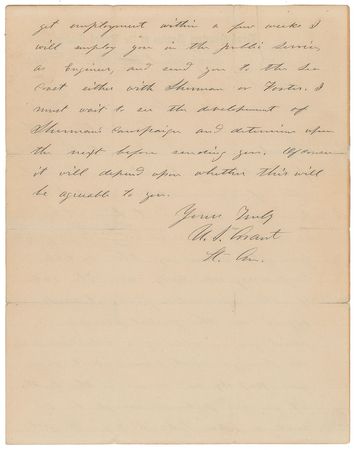 get employment within a few weeks I
will employ you in the public service,
as Engineer, and send you to the Sea
Coast either with Sherman or Foster. I
must wait to see the development of
Sherman's campaign and determine upon
the next before sending you. Of course
it will depend upon whether this will
be agreeable to you.
Yours Truly
U. S. Grant
Lt. Gn.